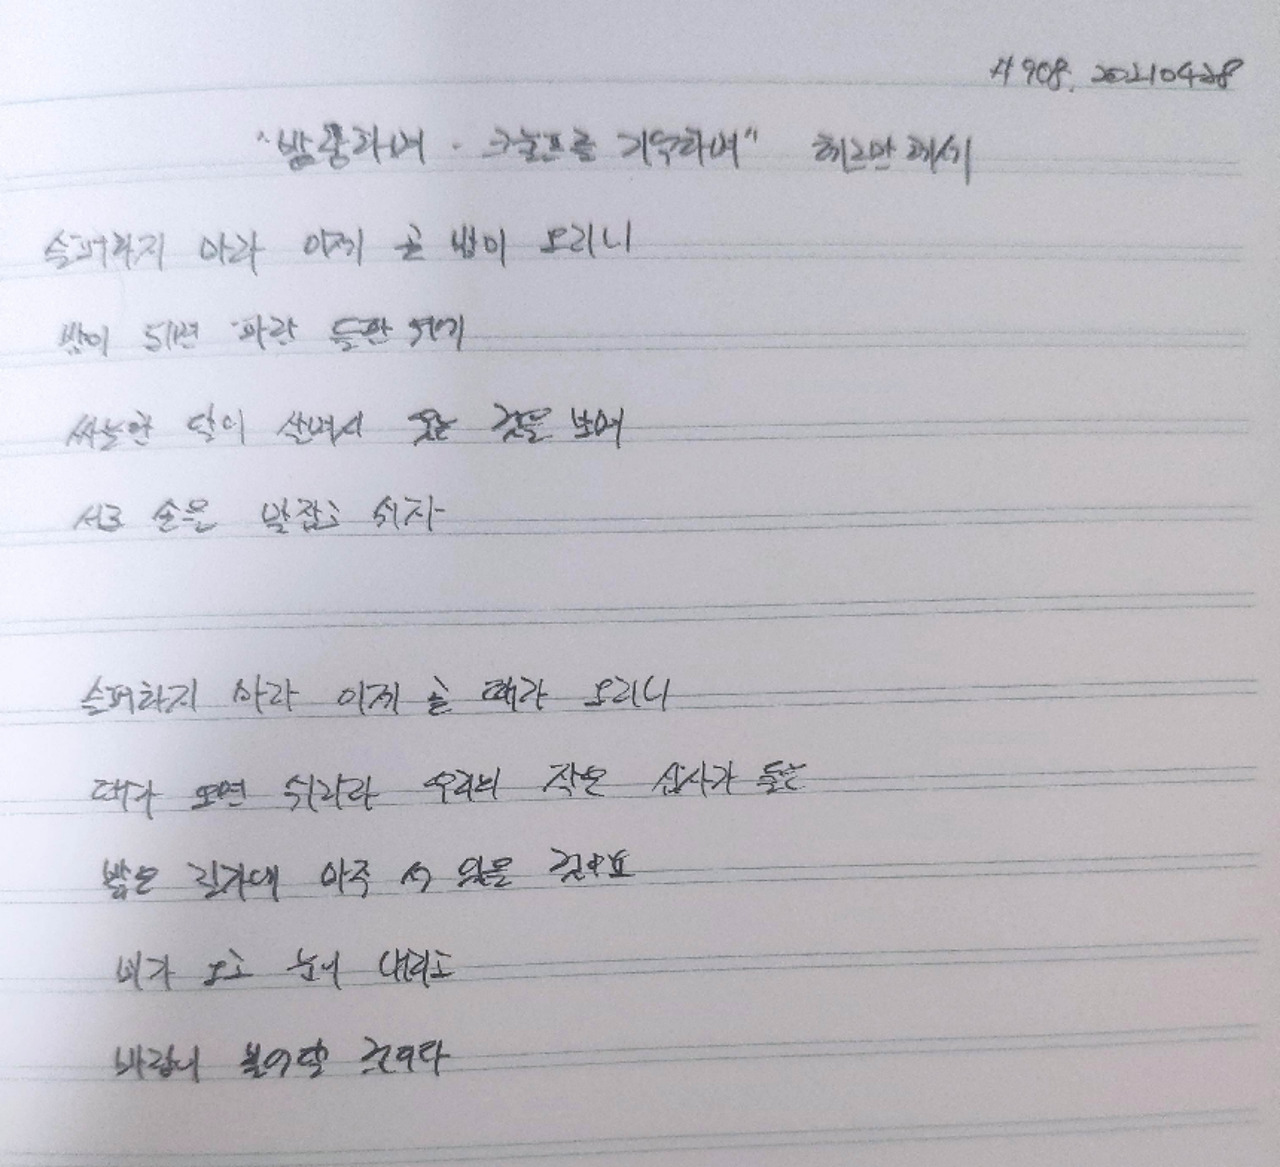 #908. 20210428
"방랑하며 · 크눌프를 기억하며" 헤르만 헤세
슬퍼하지 마라 이제 곧 밤이 오리니
밤이 되면 파란 들판 위에
싸늘한 달이 살며시 웃는 것을 보며
서로 손을 맞잡고 쉬자
슬퍼하지 마라 이제 곧 때가 오리니
때가 오면 쉬리라 우리의 작은 십자가 둘은
밝은 길가에 마주 서 있을
비가 오고 눈이 내리고
바람이 불어올 것이다